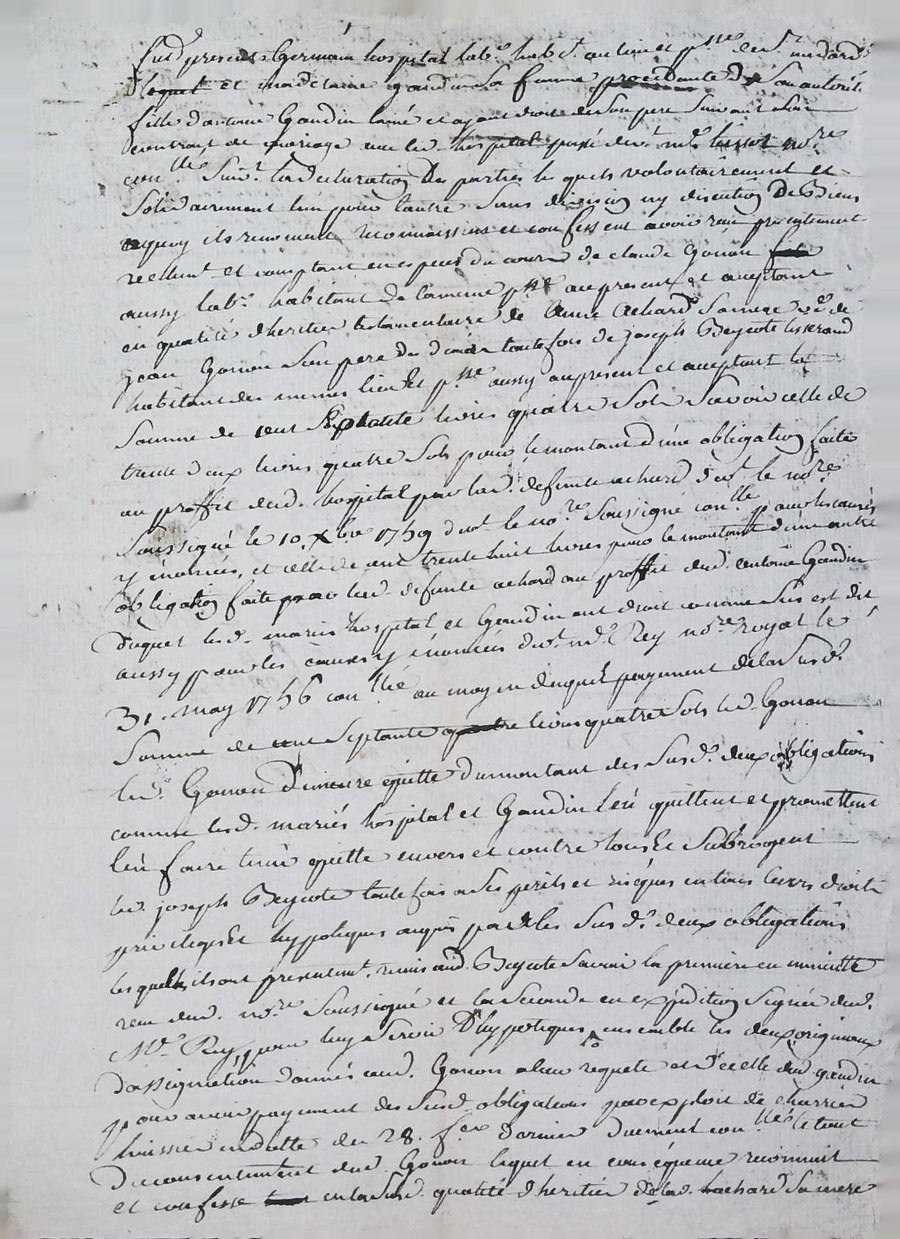 fud present Germain hospital lab.r hab.t au lieu et p.sse de S.t
et madelaine gaudin sa femme procédante de son autorité
fille d'antoine Gaudin lainé et ayant droit de son pere suivant son
contrat de mariage avec led. hospital passé dev.t m.e no.re
con.llé suiv.t la declaration des parties lesquels volontairement et
solidairement l'un pour l'autre sans division ny discution De Biens
aquoy ils renoncent reconnaissent et confessent avoir reçu presentement
reellem.t et comptant en especes du cours de claude Gonon
aussy lab.r habitant de p.sse au present et acceptant
en qualité d'heritier testamentaire de anne achard sa mere v.e de
jean Gonon son pere des deniers toutefois de joseph Beycote tisserand
habitant des memes lieu et p.sse aussy au present et acceptant la
somme de cent Septante livres quatre Sols Savoir celle de
trente deux livres quatre Sols pour le montant d'une obligation faite
au proffit dud. hospital par lad. defunte achard dev.t le no.re
Soussigné le 10. Xbre 1759 dev.t le no.re Soussigné con.llé pour les causes
y énoncées, et celle de cent trente huit livres pour le montant d'une autre
obligation faite par lad. defunte achard au proffit dud. antoine Gaudin
duquel lesd. mariés hospital et Gaudin ont droit comme Sus est dit
aussy pour les causes y énoncées dev.t m.e Rey no.re royal le
31. may 1756 con.llé au moyen duquel payement de la Susd.e
Somme de cent Septante quatre livres quatre Sols led. Gonon
led. Gonon demeure quitte du montant des Susd.es deux obligations
comme lesd. mariés hospital et Gaudin l'en quittent et promettent
l'en faire tenir quitte envers et contre tous Et Subrogent
led. joseph Beycote toutefois a Ses perils et risques en tous leurs droits
privileges Et hypoteques aquis par les Susd.es deux obligations
lesquelles ils ont presentem.t remis aud. Beycote Savoir la premiere en minutte
reçue dud. no.re Soussigné et la Seconde en expédition Signée dud.
M.e Rey, pour luy Servir D'hypoteques, ensemble les deux originaux
d'assignation donnés aud. Gonon a leur requete et a celle dud. gaudin
pour avoir payement des Susd. obligations par exploit de charrier
huissier en datte du 28. f.er dernier duement con.llé le tout
du consentement dud. Gonon lequel en conséquence reconnait
et confesse en la Susd. qualité d'heritier de lad. achard Sa mere